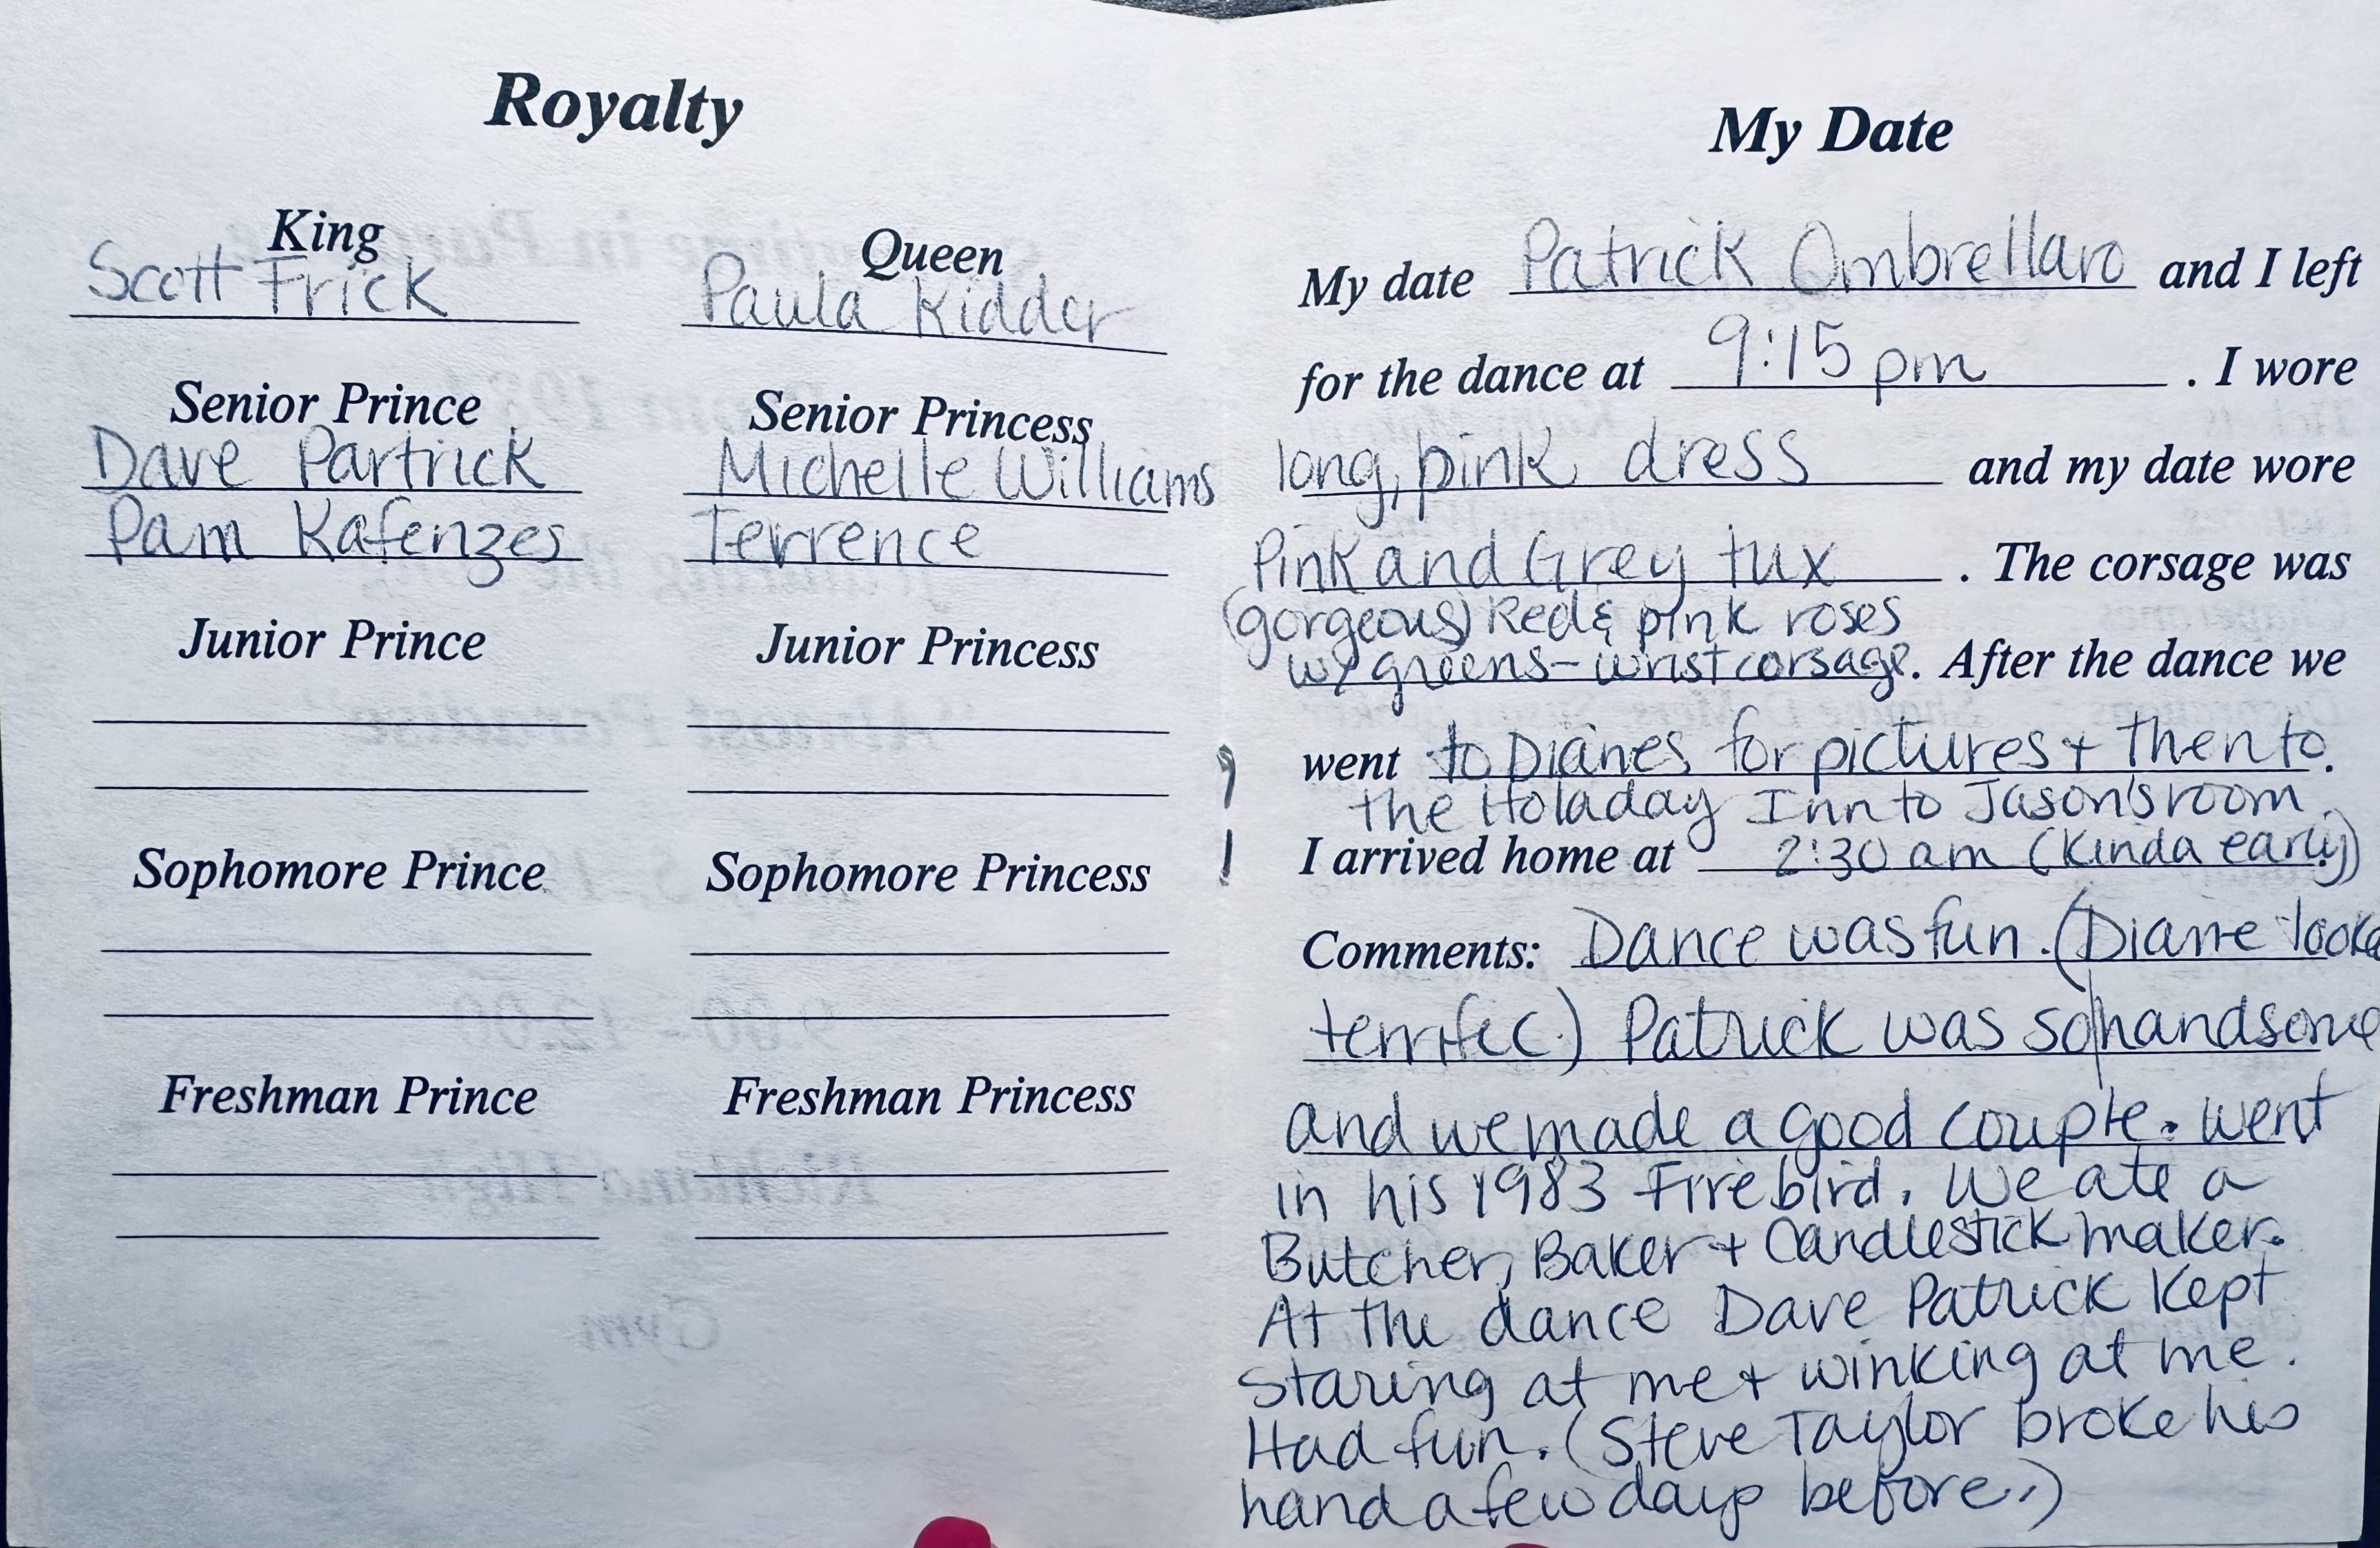 Royalty
King
Scott Frick
Queen
Paula Kidder
Senior Prince
Dave Partrick
Pam Kafenzes
Senior Princess
Michelle Williams
Terrence
Junior Prince
Junior Princess
Sophomore Prince
Sophomore Princess
Freshman Prince
Freshman Princess
My Date
My date Patrick Ombrellaro and I left
for the dance at 9:15 pm . I wore
long, pink dress and my date wore
Pink and Grey tux . The corsage was
(gorgeous) Red & pink roses
w/ greens - wrist corsage. After the dance we
went to Dianes for pictures + then to.
the Holaday Inn to Jason's room.
I arrived home at 2:30 am (kinda early)
Comments: Dance was fun. (Diane
terrifec.) Patrick was so handsome
and we made a good couple. went
in his 1983 Firebird. We ate a
Butcher, Baker + Candlestick maker.
At the dance Dave Patrick kept
staring at me + winking at me.
Had fun. (Steve Taylor broke his
hand a few days before.)